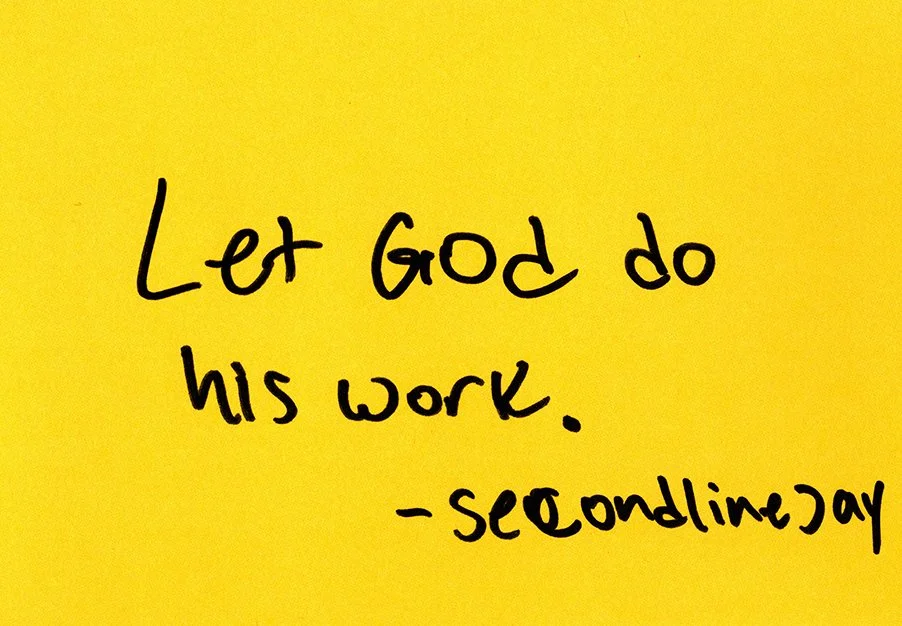 Let God do
his work.
- secondlineJay